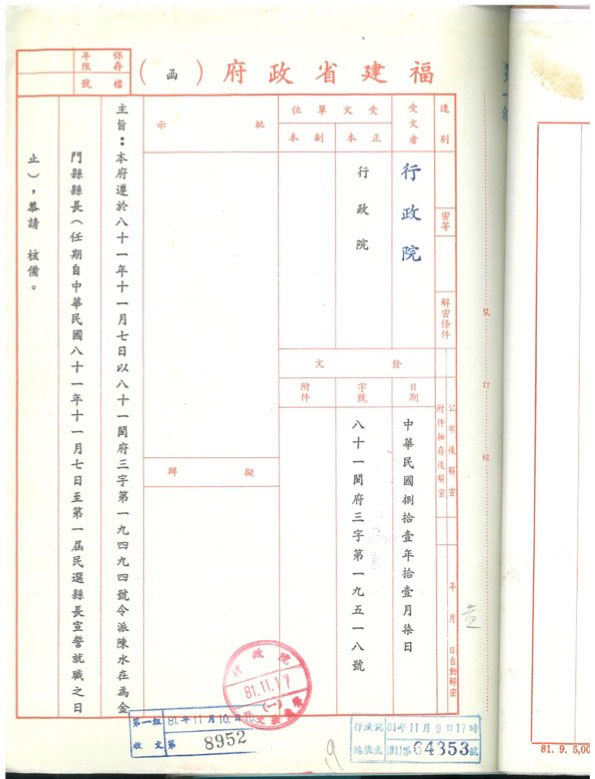 福建省政府（函）
保存年限
檔號
速別
密等
解密條件
公布後解密
附件抽存後解密
年月日自動解密
受文者
行政院
受文單位
正本
行政院
副本
發文
日期
中華民國捌拾壹年拾壹月柒日
字號
八十一閩府三字第一九五一八號
附件
批示
擬辦
主旨：本府遵於八十一年十一月七日以八十一閩府三字第一九四九四號令派陳水在為金
門縣縣長（任期自中華民國八十一年十一月七日至第一屆民選縣長宣誓就職之日
止），恭請　核備。
裝訂線
行政院
81.11.17
(一)
第一組 81年11月10日
收文 第 8952
行政院 81年11月9日17時
總收文 (81)第64353號
81. 9. 5,00